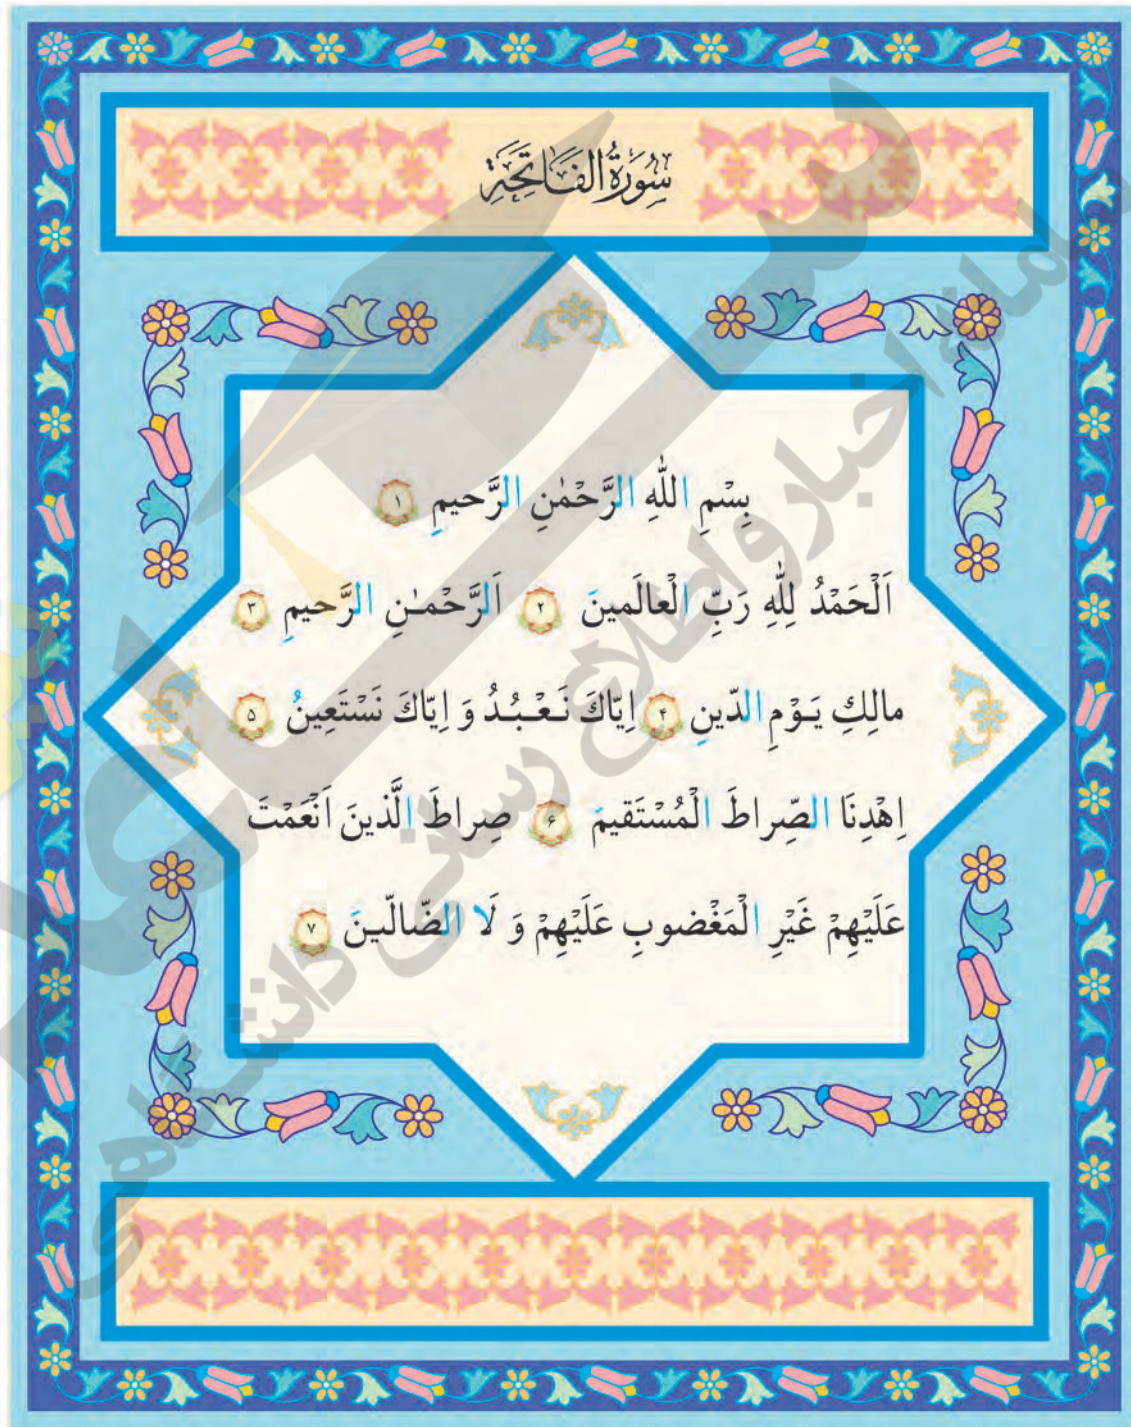 سُورَةُ الفَاتِحَةِ
بِسْمِ اللّٰهِ الرَّحْمٰنِ الرَّحیمِ ۱
اَلْحَمْدُ لِلّٰهِ رَبِّ الْعالَمینَ ۲ اَلرَّحْمـٰنِ الرَّحیمِ ۳
مالِكِ یَـوْمِ الدّینِ ۴ اِیّاكَ نَـعْـبُـدُ وَ اِیّاكَ نَسْتَعینُ ۵
اِهْدِنَا الصِّراطَ الْمُسْتَقیمَ ۶ صِراطَ الَّذینَ اَنْعَمْتَ
عَلَیْهِمْ غَیْرِ الْمَغْضوبِ عَلَیْهِمْ وَ لَا الضّالّینَ ۷
سامانه اخبار و اطلاع رسانی دانشگاهی